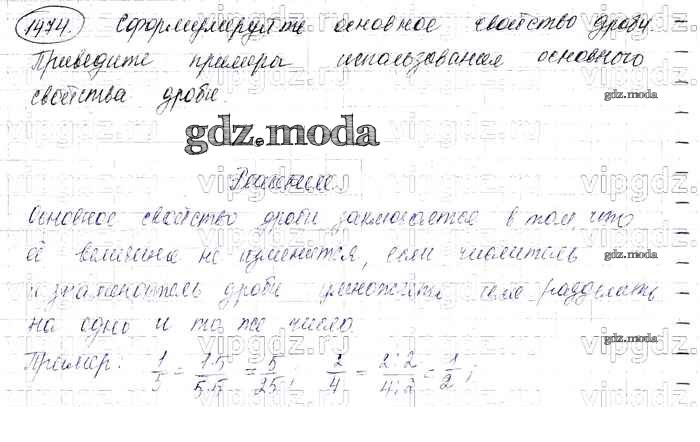 1474. Сформулируйте основное свойство дроби.
Приведите примеры использования основного
свойства дроби.
gdz.moda
Решение.
Основное свойство дроби заключается в том, что
её величина не изменится, если числитель
и знаменатель дроби умножить или разделить
на одно и то же число.
Пример: 1/5 = 1·5/5·5 = 5/25; 2/4 = 2:2/4:2 = 1/2;